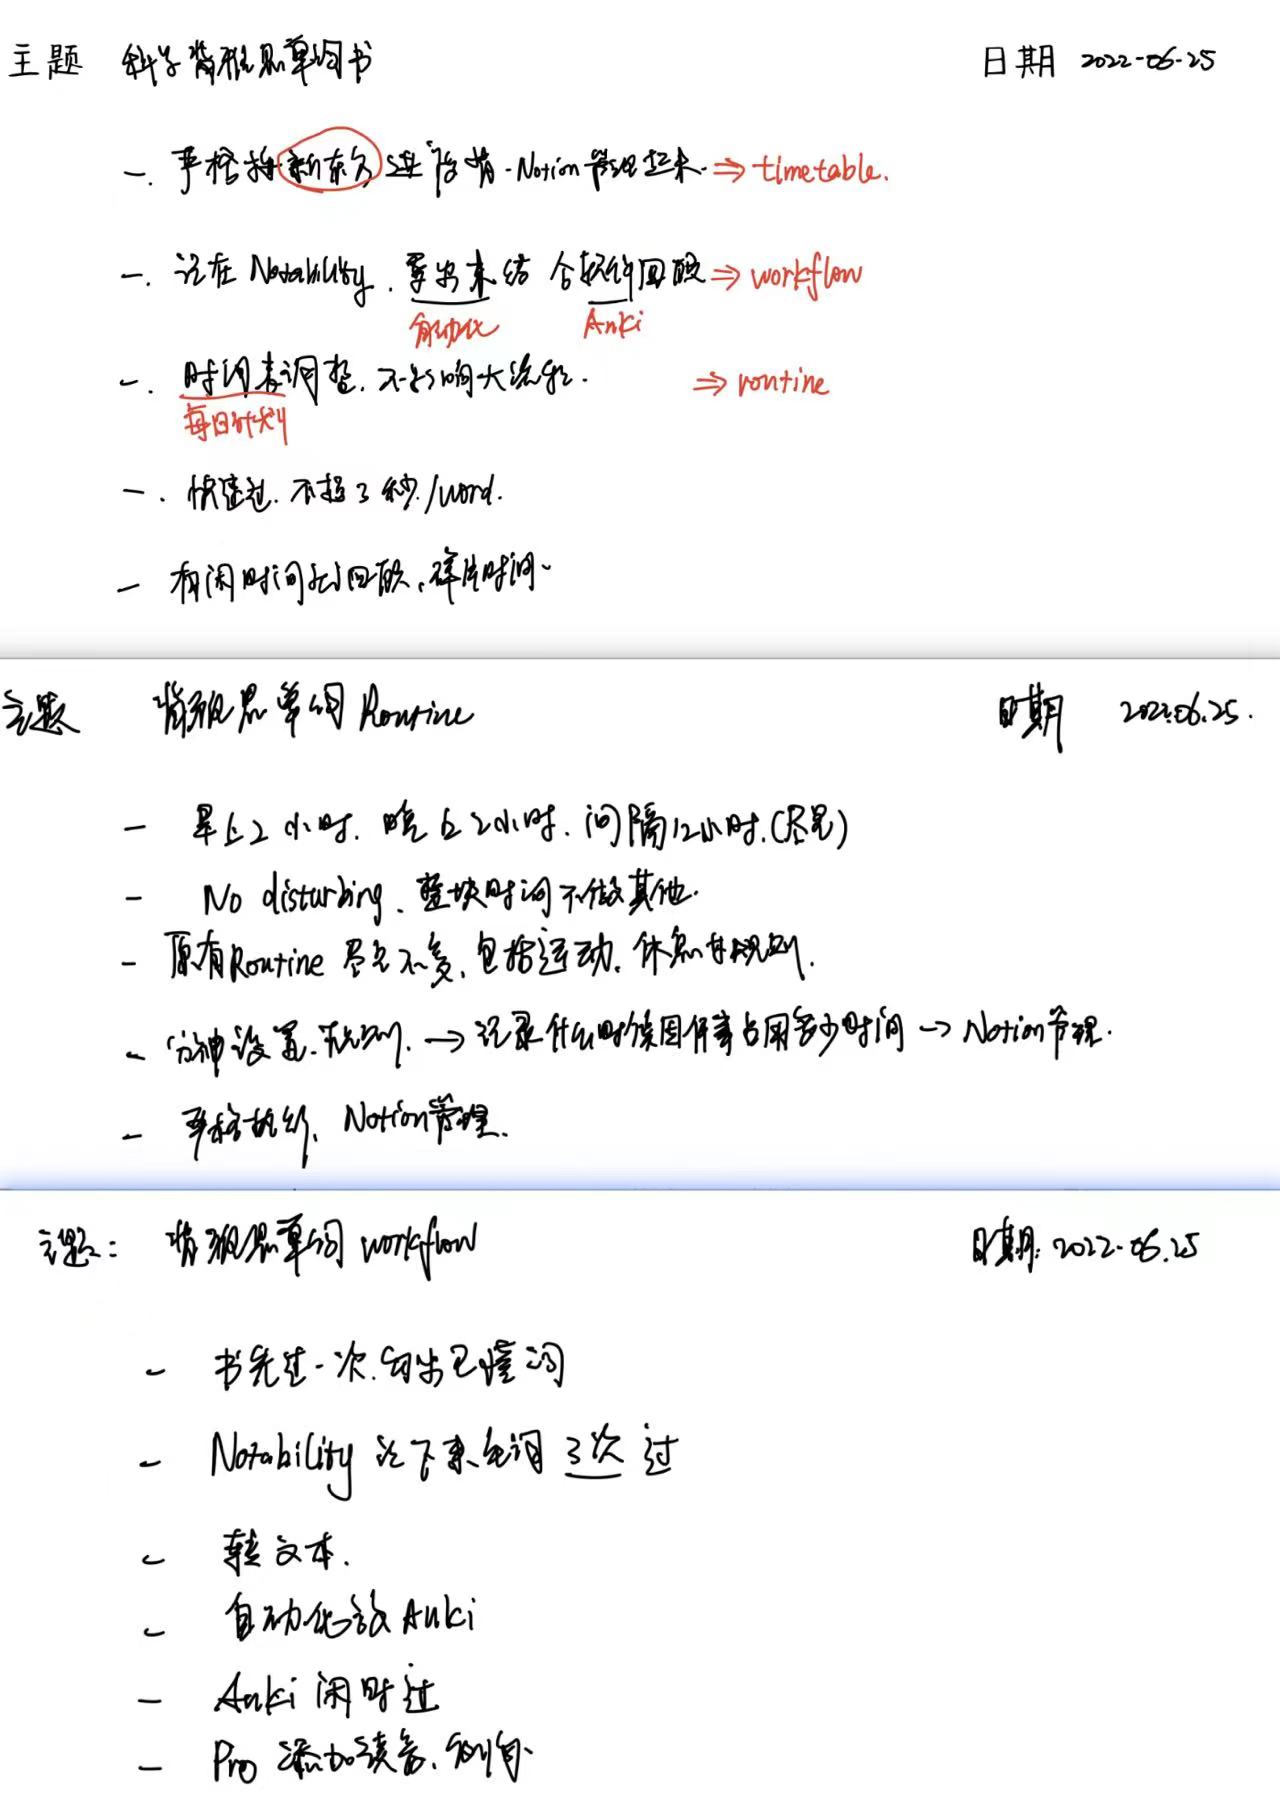 主题 科学背雅思单词书 日期 2022-06-25
一. 严格按新东方 背. Notion管理起来. ⇒ timetable.
一. 记在 Notability. 要出来结合软件回顾 ⇒ workflow
自动化 Anki
一. 时间表调整. 不影响大流程. ⇒ routine
每日计划
一. 快速过. 不超3秒/word.
一 有闲时间就回顾. 碎片时间.
主题 背雅思单词 Routine 日期 2022.06.25.
- 早上2小时. 晚上2小时. 间隔12小时.(尽量)
- No disturbing. 整块时间不做其他.
- 原有Routine 尽量不变. 包括运动. 休息 规划.
- 分神设置. 规则. → 记录什么时候因何事占用多少时间 → Notion管理.
- 严格执行. Notion管理.
主题: 背雅思单词 workflow 日期: 2022-06.25
- 书先过一次. 勾出已懂词
- Notability 记下来生词 3次 过
- 转文本.
- 自动化放 Anki
- Anki 闲时过
- Pro 添加读音. 例句.